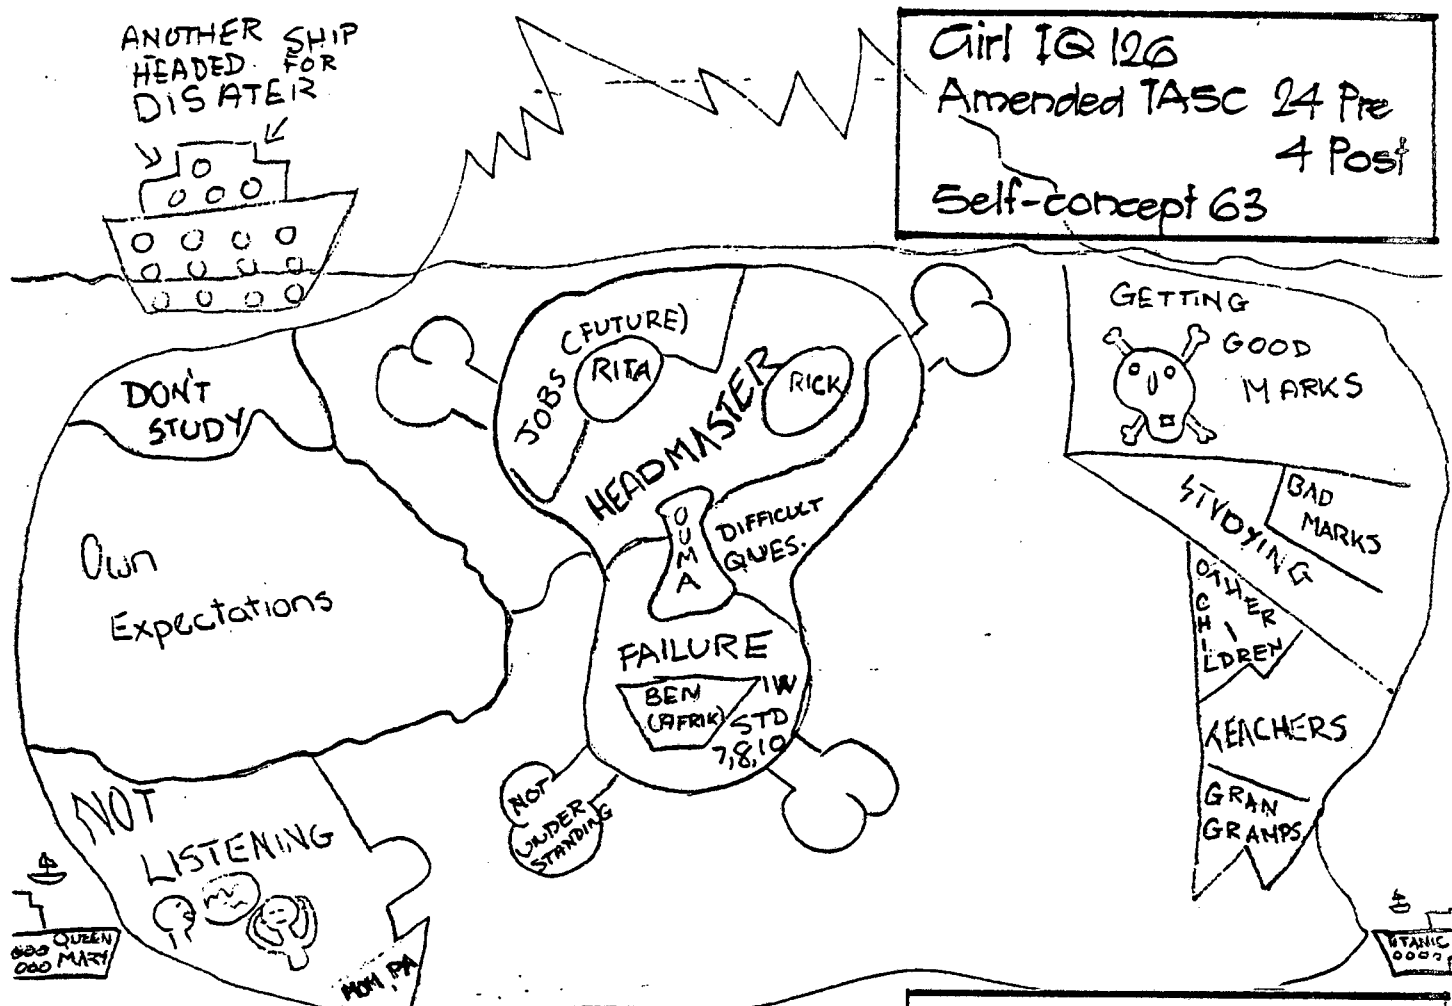 ANOTHER SHIP
HEADED FOR
DISATER
Girl IQ 126
Amended TASC 24 Pre
4 Post
Self-concept 63
DON'T
STUDY
Own
Expectations
NOT
LISTENING
MOM, PA
QUEEN
MARY
JOBS (FUTURE)
RITA
HEADMASTER
RICK
OUMA
DIFFICULT
QUES.
FAILURE
BEN
(AFRIK)
IW
STD
7,8,10
NOT
UNDER
STANDING
GETTING
GOOD
MARKS
STUDYING
BAD
MARKS
OTHER
CHILDREN
TEACHERS
GRAN
GRAMPS
TITANIC